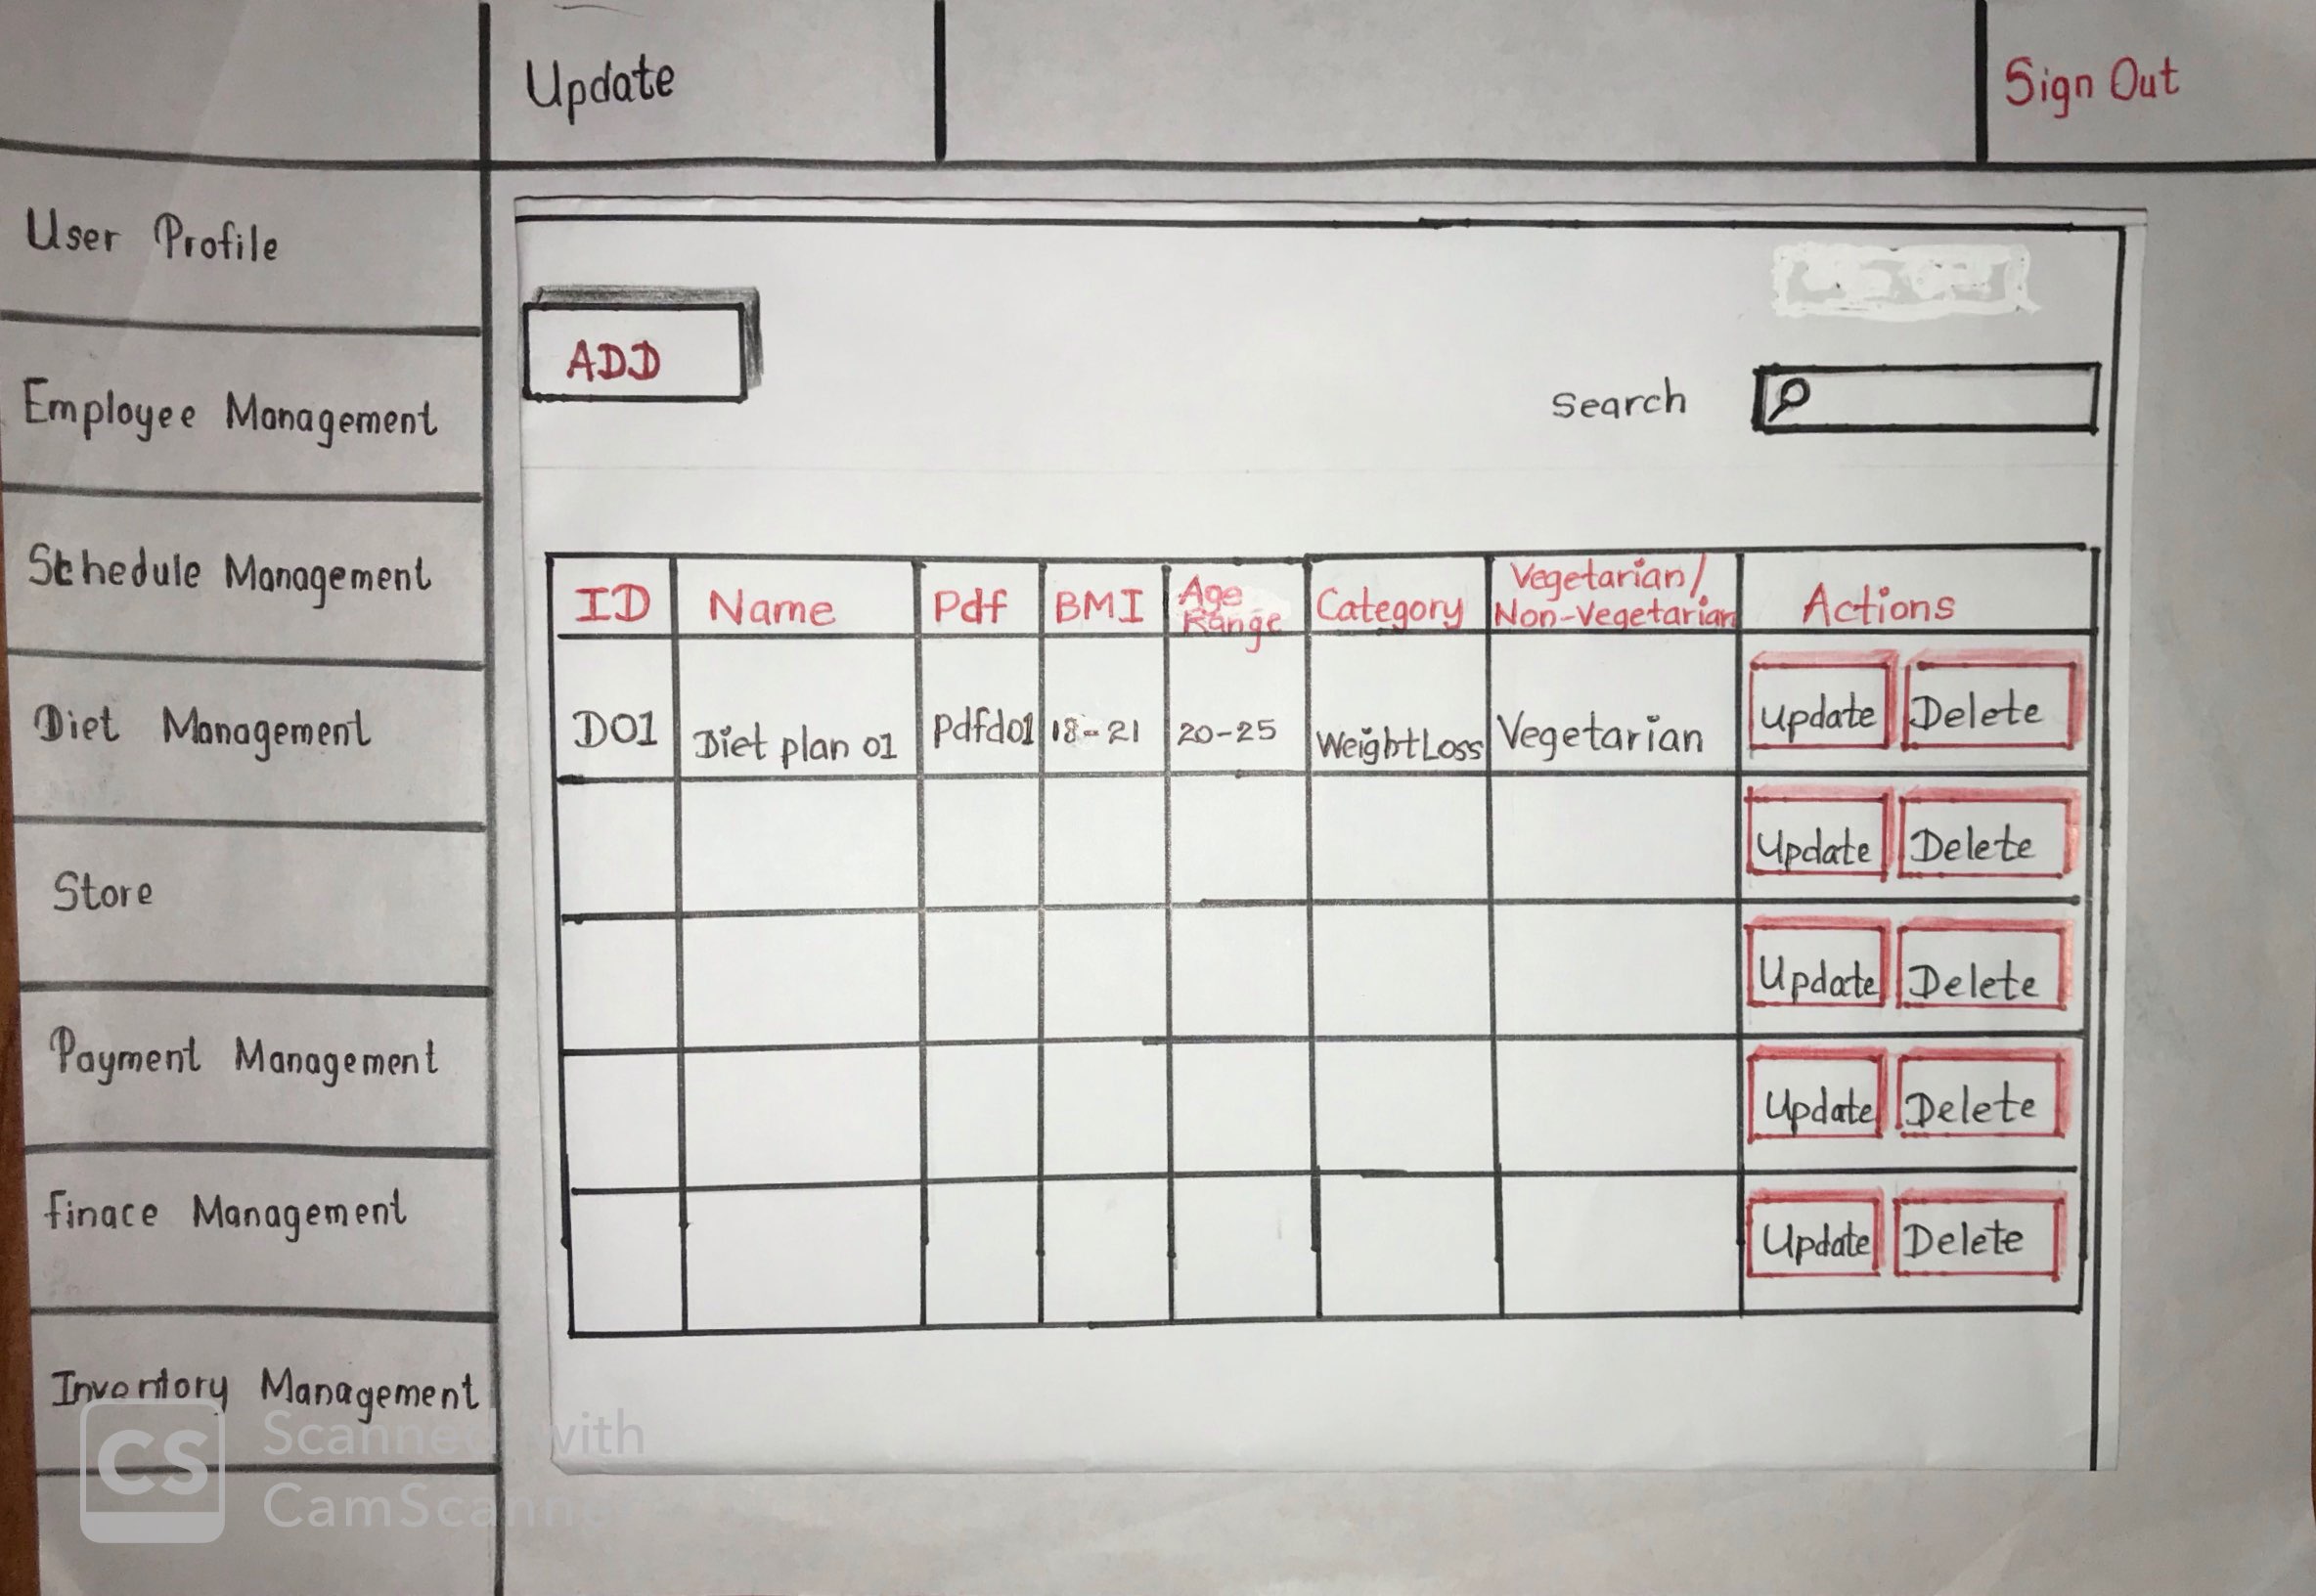 Update
Sign Out
User Profile
Employee Management
Schedule Management
Diet Management
Store
Payment Management
Finace Management
Inventory Management
ADD
Search
ID Name Pdf BMI Age Range Category Vegetarian/ Non-Vegetarian Actions
D01 Diet plan 01 Pdfd01 18-21 20-25 WeightLoss Vegetarian Update Delete
Update Delete
Update Delete
Update Delete
Update Delete
CS Scanned with
CamScanner